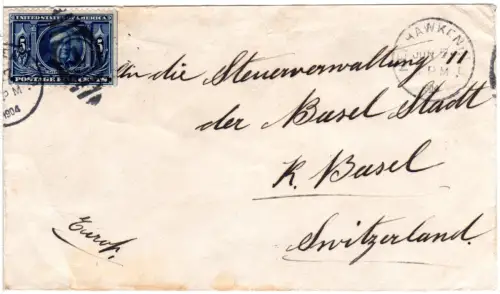 UNITED STATES OF AMERICA
5 5
POSTAGE FIVE CENTS
PM
1904
HAWKEN
JUN
PM
An die Steuerverwaltung
der Basel Stadt
K. Basel
Switzerland.
Europ.